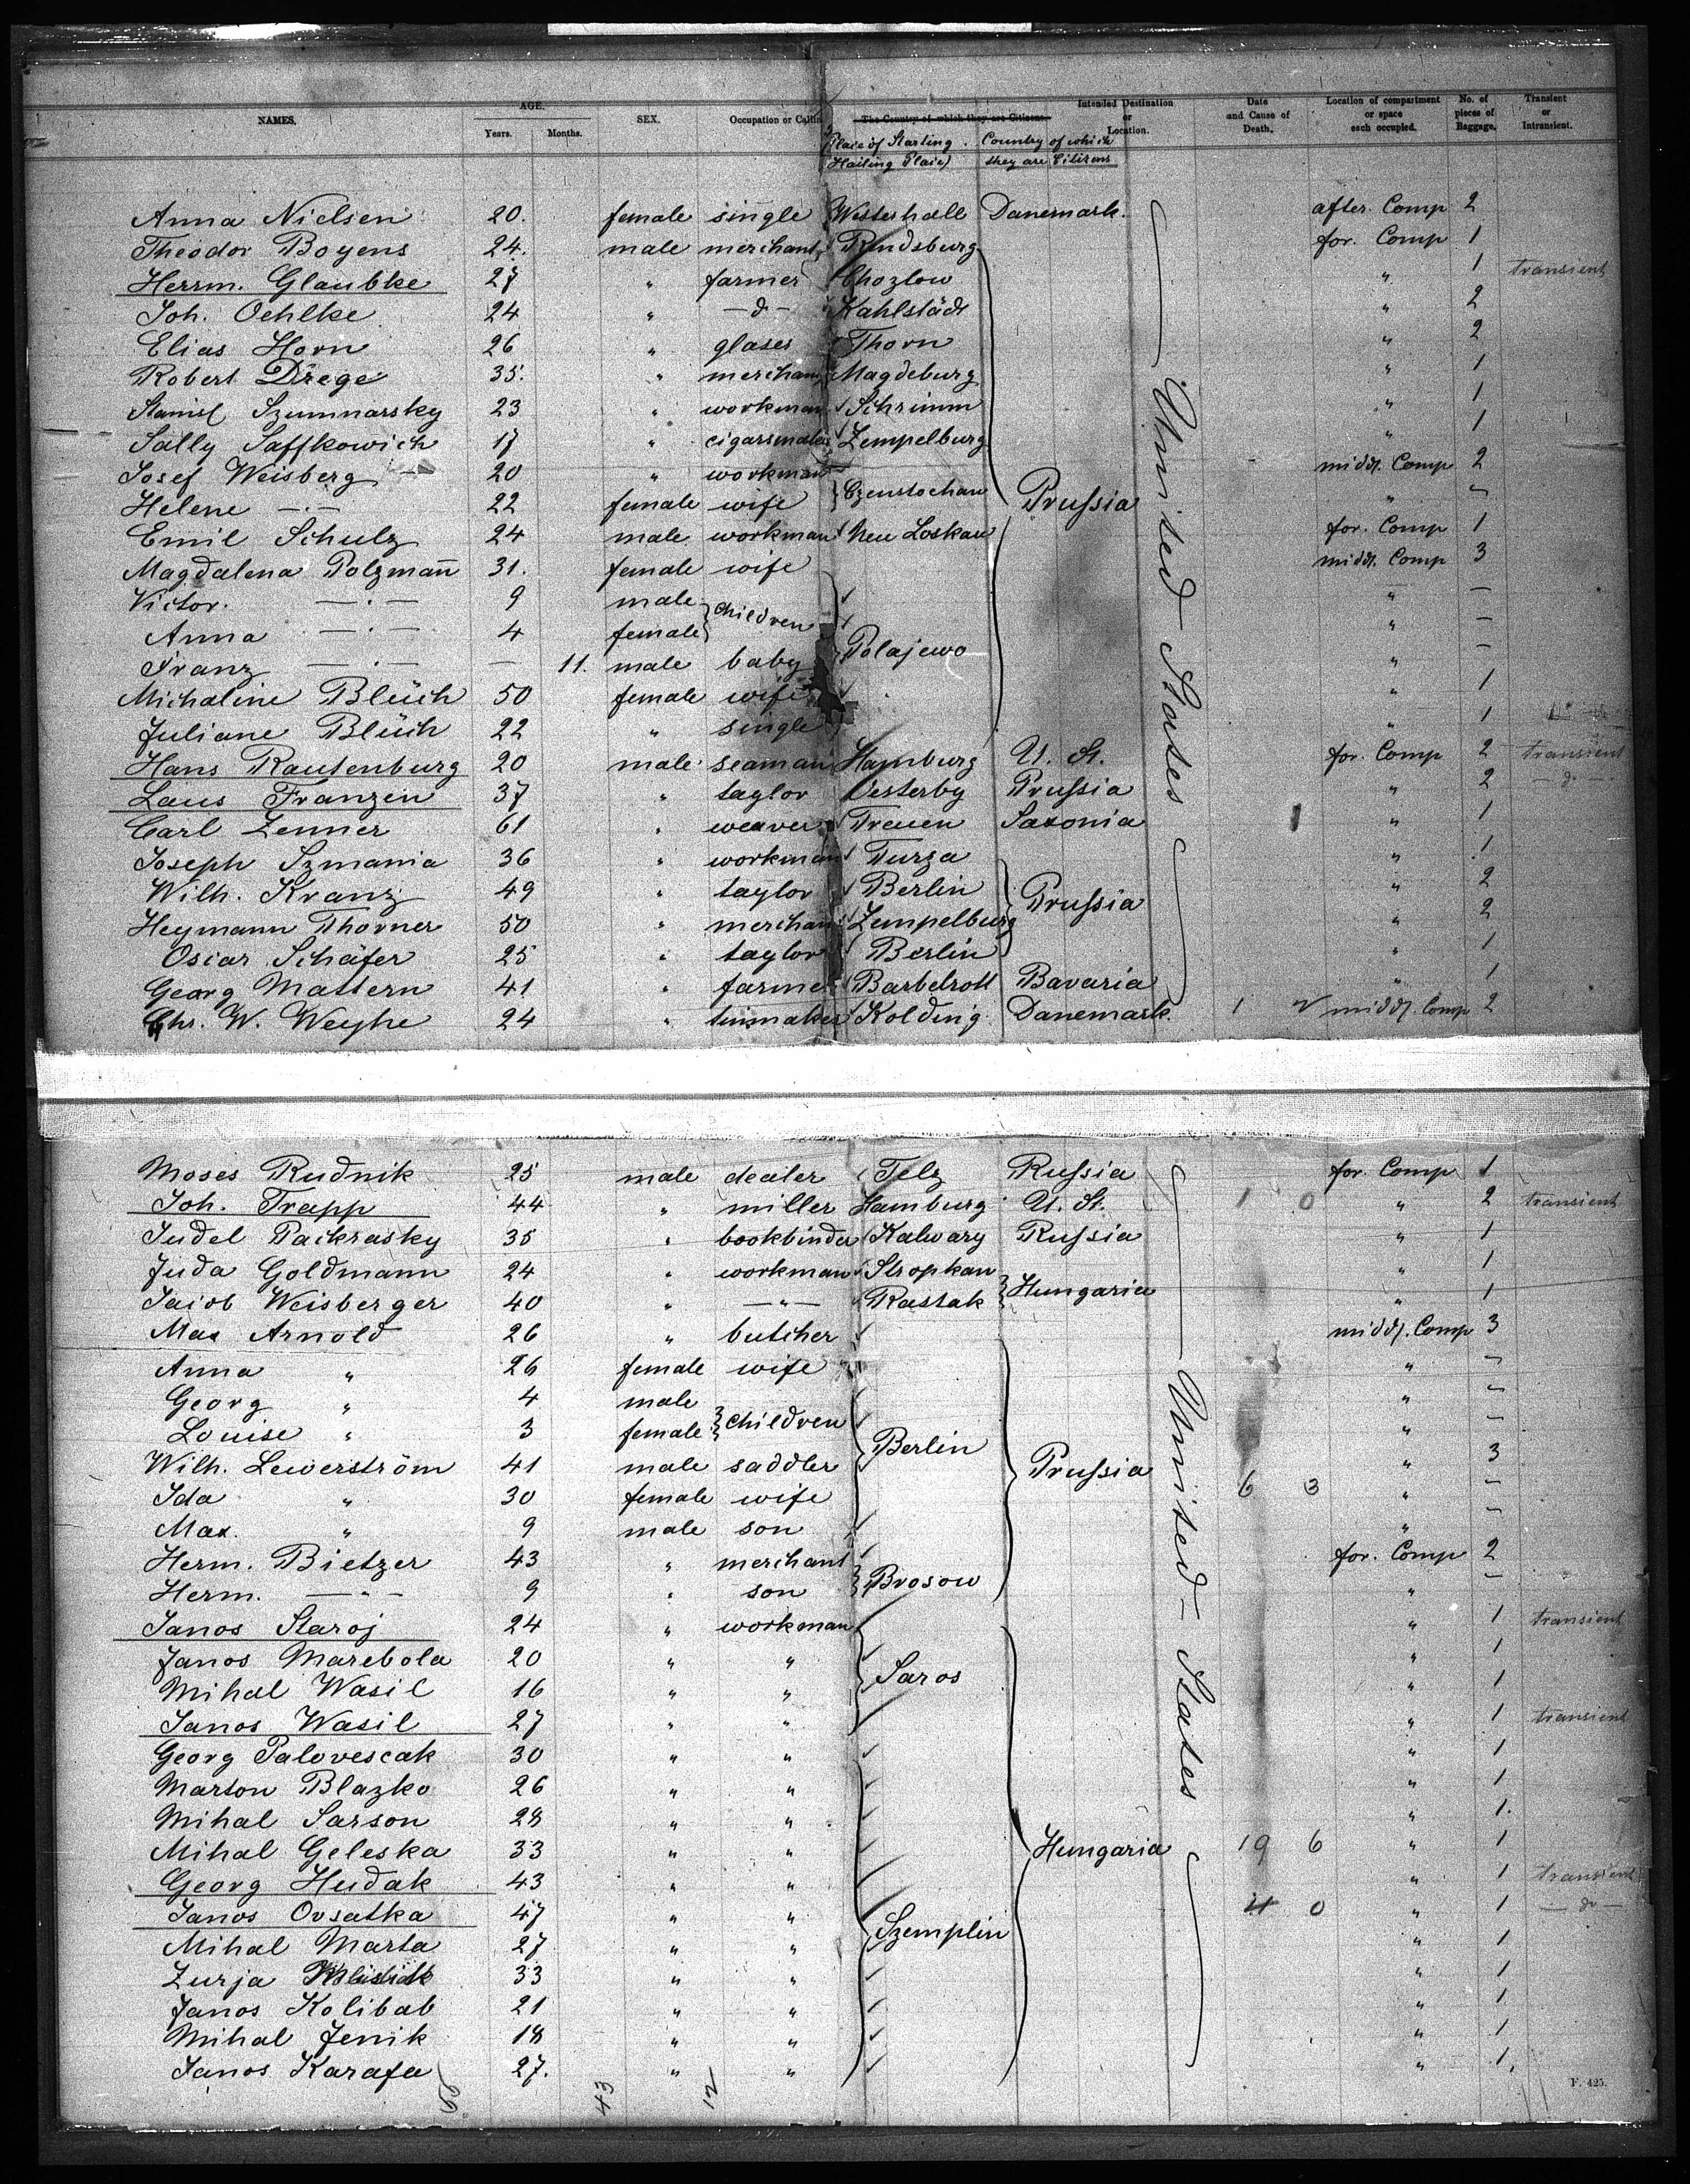 NAMES. AGE. SEX. Occupation or Calling The Country of which they are Citizens. Intended Destination or Location. Date and Cause of Death. Location of compartment or space each occupied. No. of pieces of Baggage. Transient or Intransient.
Years. Months. Place of Starting. Country of which
Hailing Place) they are Citizens
Anna Nielsen 20. female single Westerhall Danemark. after. Comp 2
Theodor Boyens 24. male merchant Rendsburg for. Comp 1
Herrm. Glaubke 27 " farmer Chozlow " 1 transient
Joh. Oehlke 24 " -d- Kahlstädt " 2
Elias Horn 26 " glaser Thorn " 2
Robert Drege 35. " merchant Magdeburg " 1
Stanisl Szumnarsky 23 " workman Schrimm " 1
Sally Saffkowich 17 " cigarsmaker Zempelburg " 1
Josef Weisberg 20 " workman middl. Comp 2
Helene -.- 22 female wife Czenstochau Prussia " -
Emil Schulz 24 male workman Neu Loskau for. Comp 1
Magdalena Polzmañ 31. female wife middl. Comp 3
Victor. -.- 9 male children " -
Anna -.- 4 female " -
Franz -.- - 11. male baby Polajewo " -
Michaline Bluch 50 female wife " 1
Juliane Bluch 22 " single " 1
Hans Rautenburg 20 male seaman Hamburg U. St. for. Comp 2 transient
Laus Franzen 37 " taylor Oesterby Prussia " 2 -d-
Carl Zenner 61 " weaver Treuen Saxonia " 1
Joseph Szmania 36 " workman Turza " 1
Wilh. Kranz 49 " taylor Berlin Prussia " 2
Heymann Thorner 50 " merchant Zempelburg " 2
Oscar Schäfer 25 " taylor Berlin " 1
Georg Mattern 41 " farmer Barbelrott Bavaria " 1
Chr. W. Weyhe 24 " Kolding Danemark. 1 middl. Comp 2
United States
Moses Rudnik 25 male dealer Telz Russia for. Comp 1
Joh. Trapp 44 " miller Hamburg U. St. 1 0 " 2 transient
Judel Packrasky 35 " bookbinder Kalwary Russia " 1
Juda Goldmann 24 " workman Stropkau " 1
Jacob Weisberger 40 " -"- Rastak Hungaria " 1
Max Arnold 26 " butcher middl. Comp 3
Anna " 26 female wife " -
Georg " 4 male children " -
Louise " 3 female " -
Wilh. Lewerström 41 male saddler Berlin Prussia " 3
Ida " 30 female wife 6 3 " -
Max. " 9 male son " -
Herm. Bietzer 43 " merchant for. Comp 2
Herm. -"- 9 " son Brosow " -
Janos Staroj 24 " workman " 1 transient
Janos Marebola 20 " " " 1
Mihal Wasil 16 " " Saros " 1
Janos Wasil 27 " " " 1 transient
Georg Palovescak 30 " " " 1
Marton Blazko 26 " " " 1
Mihal Sarson 28 " " " 1.
Mihal Geleska 33 " " Hungaria 19 6 " 1
Georg Hudak 43 " " " 1 transient
Janos Ovsatka 47 " " 4 0 " 1 -do-
Mihal Marta 27 " " Szemplin " 1
Zurja 33 " " " 1
Janos Kolibab 21 " " " 1
Mihal Jenik 18 " " " 1
Janos Karafa 27. " " " 1.
United States
43 12
F. 425.